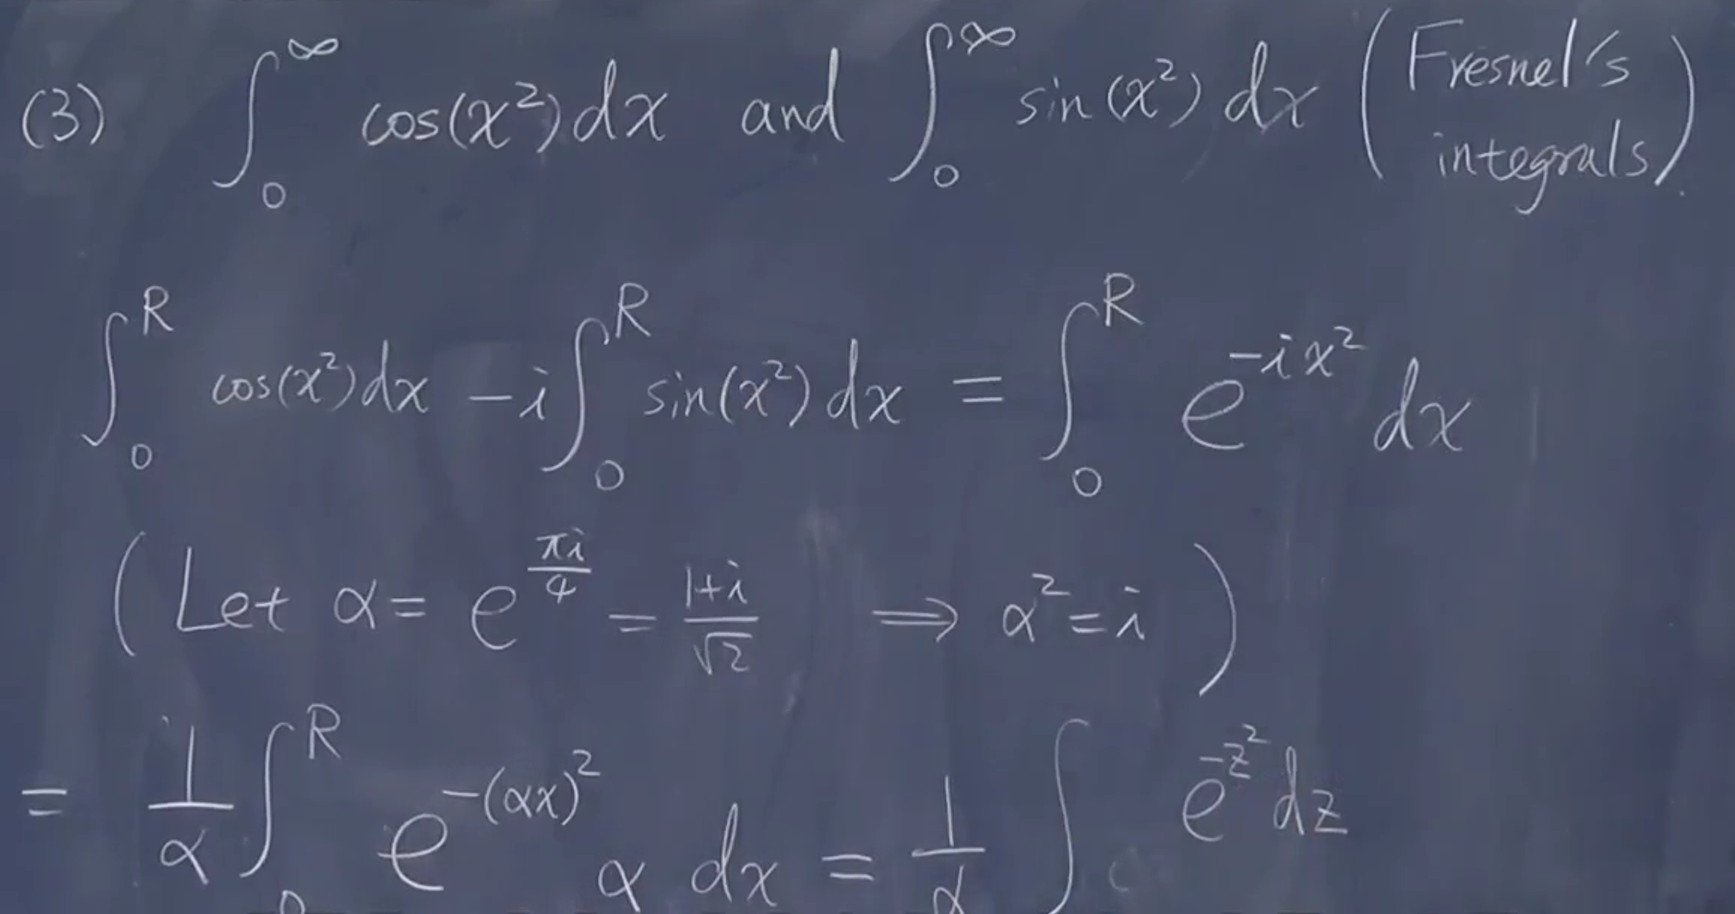 (3) ∫₀^∞ cos(x²)dx and ∫₀^∞ sin(x²)dx (Fresnel's integrals)
∫₀^R cos(x²)dx - i∫₀^R sin(x²)dx = ∫₀^R e^{-ix²} dx
(Let α = e^{πi/4} = (1+i)/√2 ⟹ α² = i)
= 1/α ∫₀^R e^{-(αx)²} α dx = 1/α ∫ e^{-z²} dz